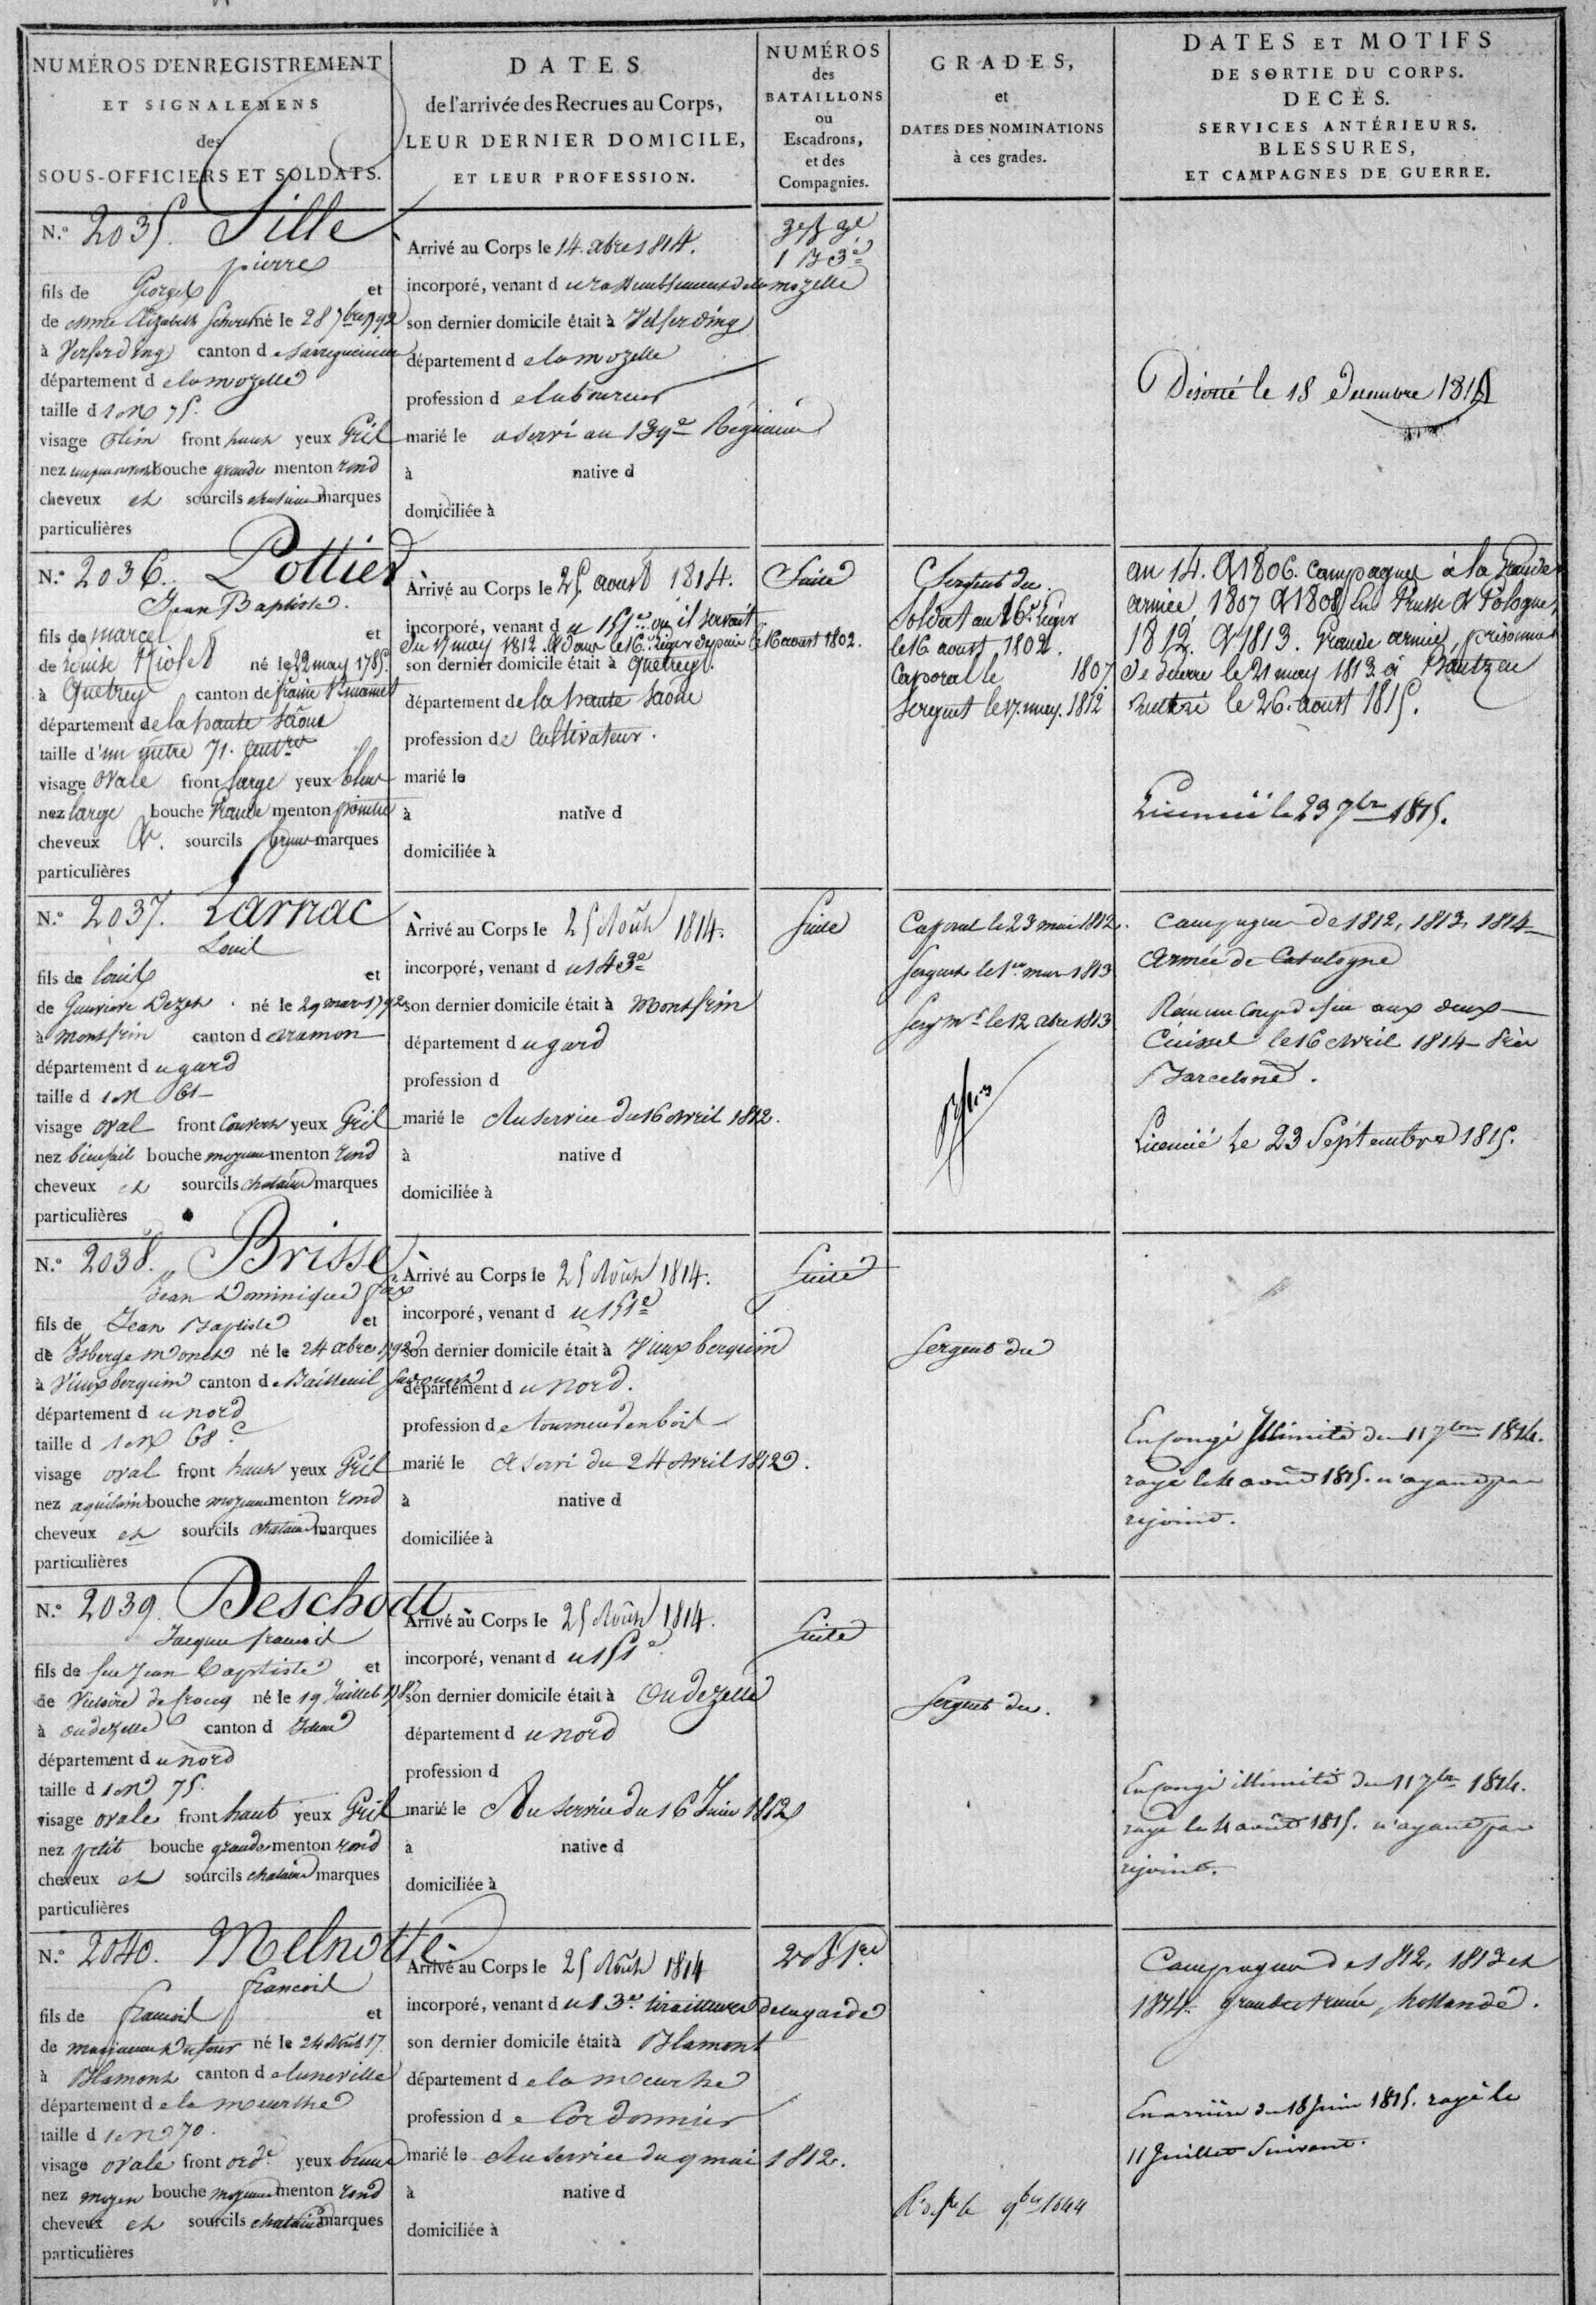 NUMÉROS D'ENREGISTREMENT
ET SIGNALEMENS
des
SOUS-OFFICIERS ET SOLDATS.
DATES
de l'arrivée des Recrues au Corps,
LEUR DERNIER DOMICILE,
ET LEUR PROFESSION.
NUMÉROS
des
BATAILLONS
ou
Escadrons,
et des
Compagnies.
GRADES,
et
DATES DES NOMINATIONS
à ces grades.
DATES ET MOTIFS
DE SORTIE DU CORPS.
DECÈS.
SERVICES ANTÉRIEURS.
BLESSURES,
ET CAMPAGNES DE GUERRE.
N.º 2035. Sille
pierre
fils de Georges et
de anne Elizabeth né le 28 7bre 1792
à Verferding canton de Sarreguemine
département de la mozelle
taille d 1 M 75.
visage plein front haut yeux Gris
nez bouche grande menton rond
cheveux et sourcils chatains marques
particulières
Arrivé au Corps le 14. abre 1814.
incorporé, venant du rassemblement de la mozelle
son dernier domicile était à Velferding
département de la mozelle
profession de laboureur
marié le a servi au 139e Régiment
à native d
domiciliée à
1 B 3e
Déserté le 18 Decembre 1814
N.º 2036. Pottier
Jean Baptiste.
fils de marcel et
de Louise Riolet né le 22 may 1785.
à Quetrey canton de
département de la haute Saône
taille d'un mètre 71. centres
visage ovale front large yeux bleus
nez large bouche Grande menton pointu
cheveux & sourcils bruns marques
particulières
Arrivé au Corps le 25 aoust 1814.
incorporé, venant du 151e où il servait
du 17 may 1812. & dans le 16e Léger depuis le 16 aoust 1802.
son dernier domicile était à Quetrey.
département de la haute Saône
profession de Cultivateur.
marié le
à native d
domiciliée à
Suite
Sergent du.
Soldat au 16e Léger
le 16 aoust 1802.
Caporal le 1807
Sergent le 17. may. 1812
an 14. & 1806. Campagnes à la Grande
armée, 1807 & 1808 en Prusse & Pologne,
1812. & 1813. Grande armée, prisonnier
de Guerre le 21 may 1813 à Bautzen
rentré le 26. aoust 1815.
Licencié le 23 7bre 1815.
N.º 2037. Larnac
Louis
fils de Louis et
de Genevieve Dezet né le 29 mars 1792
à montfrin canton d aramon
département du gard
taille d 1 M 61
visage oval front Couvert yeux Gris
nez bienfait bouche moyenne menton rond
cheveux et sourcils chatains marques
particulières
Arrivé au Corps le 25 Août 1814.
incorporé, venant du 143e
son dernier domicile était à Montfrin
département du gard
profession d
marié le Au service du 16 Avril 1812.
à native d
domiciliée à
Suite
Caporal le 23 mai 1812.
Sergent le 1er mars 1813
Serg Mr le 12 abre 1813
Campagnes de 1812, 1813, 1814
Armée de Catalogne
Reçu un Coup de feu aux deux
Cuisses le 16 Avril 1814 Près
Barcelone.
Licencié Le 23 Septembre 1815.
N.º 2038. Brisse
Jean Dominique
fils de Jean Baptiste et
de Isberge né le 24 abre 1792
à Vieux berquin canton de Bailleuil
département du nord
taille d 1 M 68 c
visage oval front haut yeux Gris
nez aquilain bouche moyenne menton rond
cheveux et sourcils chatains marques
particulières
Arrivé au Corps le 25 Août 1814.
incorporé, venant du 151e
son dernier domicile était à Vieux berquin
département du nord.
profession de tourneur en bois
marié le A servi du 24 Avril 1812.
à native d
domiciliée à
Suite
Sergent du
En congé Illimité du 11 7bre 1814.
rayé le 4 août 1815. n'ayant pas
rejoint.
N.º 2039. Deschodt
Jacques francois
fils de feu Jean Baptiste et
de Victoire né le 19 Juillet
à oudezelle canton d
département du nord
taille d 1 M 75.
visage ovale front haut yeux Gris
nez petit bouche grande menton rond
cheveux et sourcils chatains marques
particulières
Arrivé au Corps le 25 Août 1814.
incorporé, venant du 151e
son dernier domicile était à Oudezelle
département du nord
profession d
marié le Au service du 16 Juin 1812
à native d
domiciliée à
Suite
Sergent du.
En congé illimité du 11 7bre 1814.
rayé le 4 août 1815. n'ayant pas
rejoint.
N.º 2040. Melnotte
francois
fils de francois et
de Dufour né le 24 Août 17
à Blamont canton de luneville
département de la meurthe
taille d 1 M 70.
visage ovale front ord.e yeux bruns
nez moyen bouche moyenne menton rond
cheveux et sourcils chatains marques
particulières
Arrivé au Corps le 25 Août 1814
incorporé, venant du 13e tirailleurs de la garde
son dernier domicile était à Blamont
département de la meurthe
profession de Cordonnier
marié le Au service du 9 mai 1812.
à native d
domiciliée à
Campagnes de 1812, 1813 et
1814. grande Armée, hollande.
En arrière du 18 juin 1815. rayé le
11 Juillet Suivant.